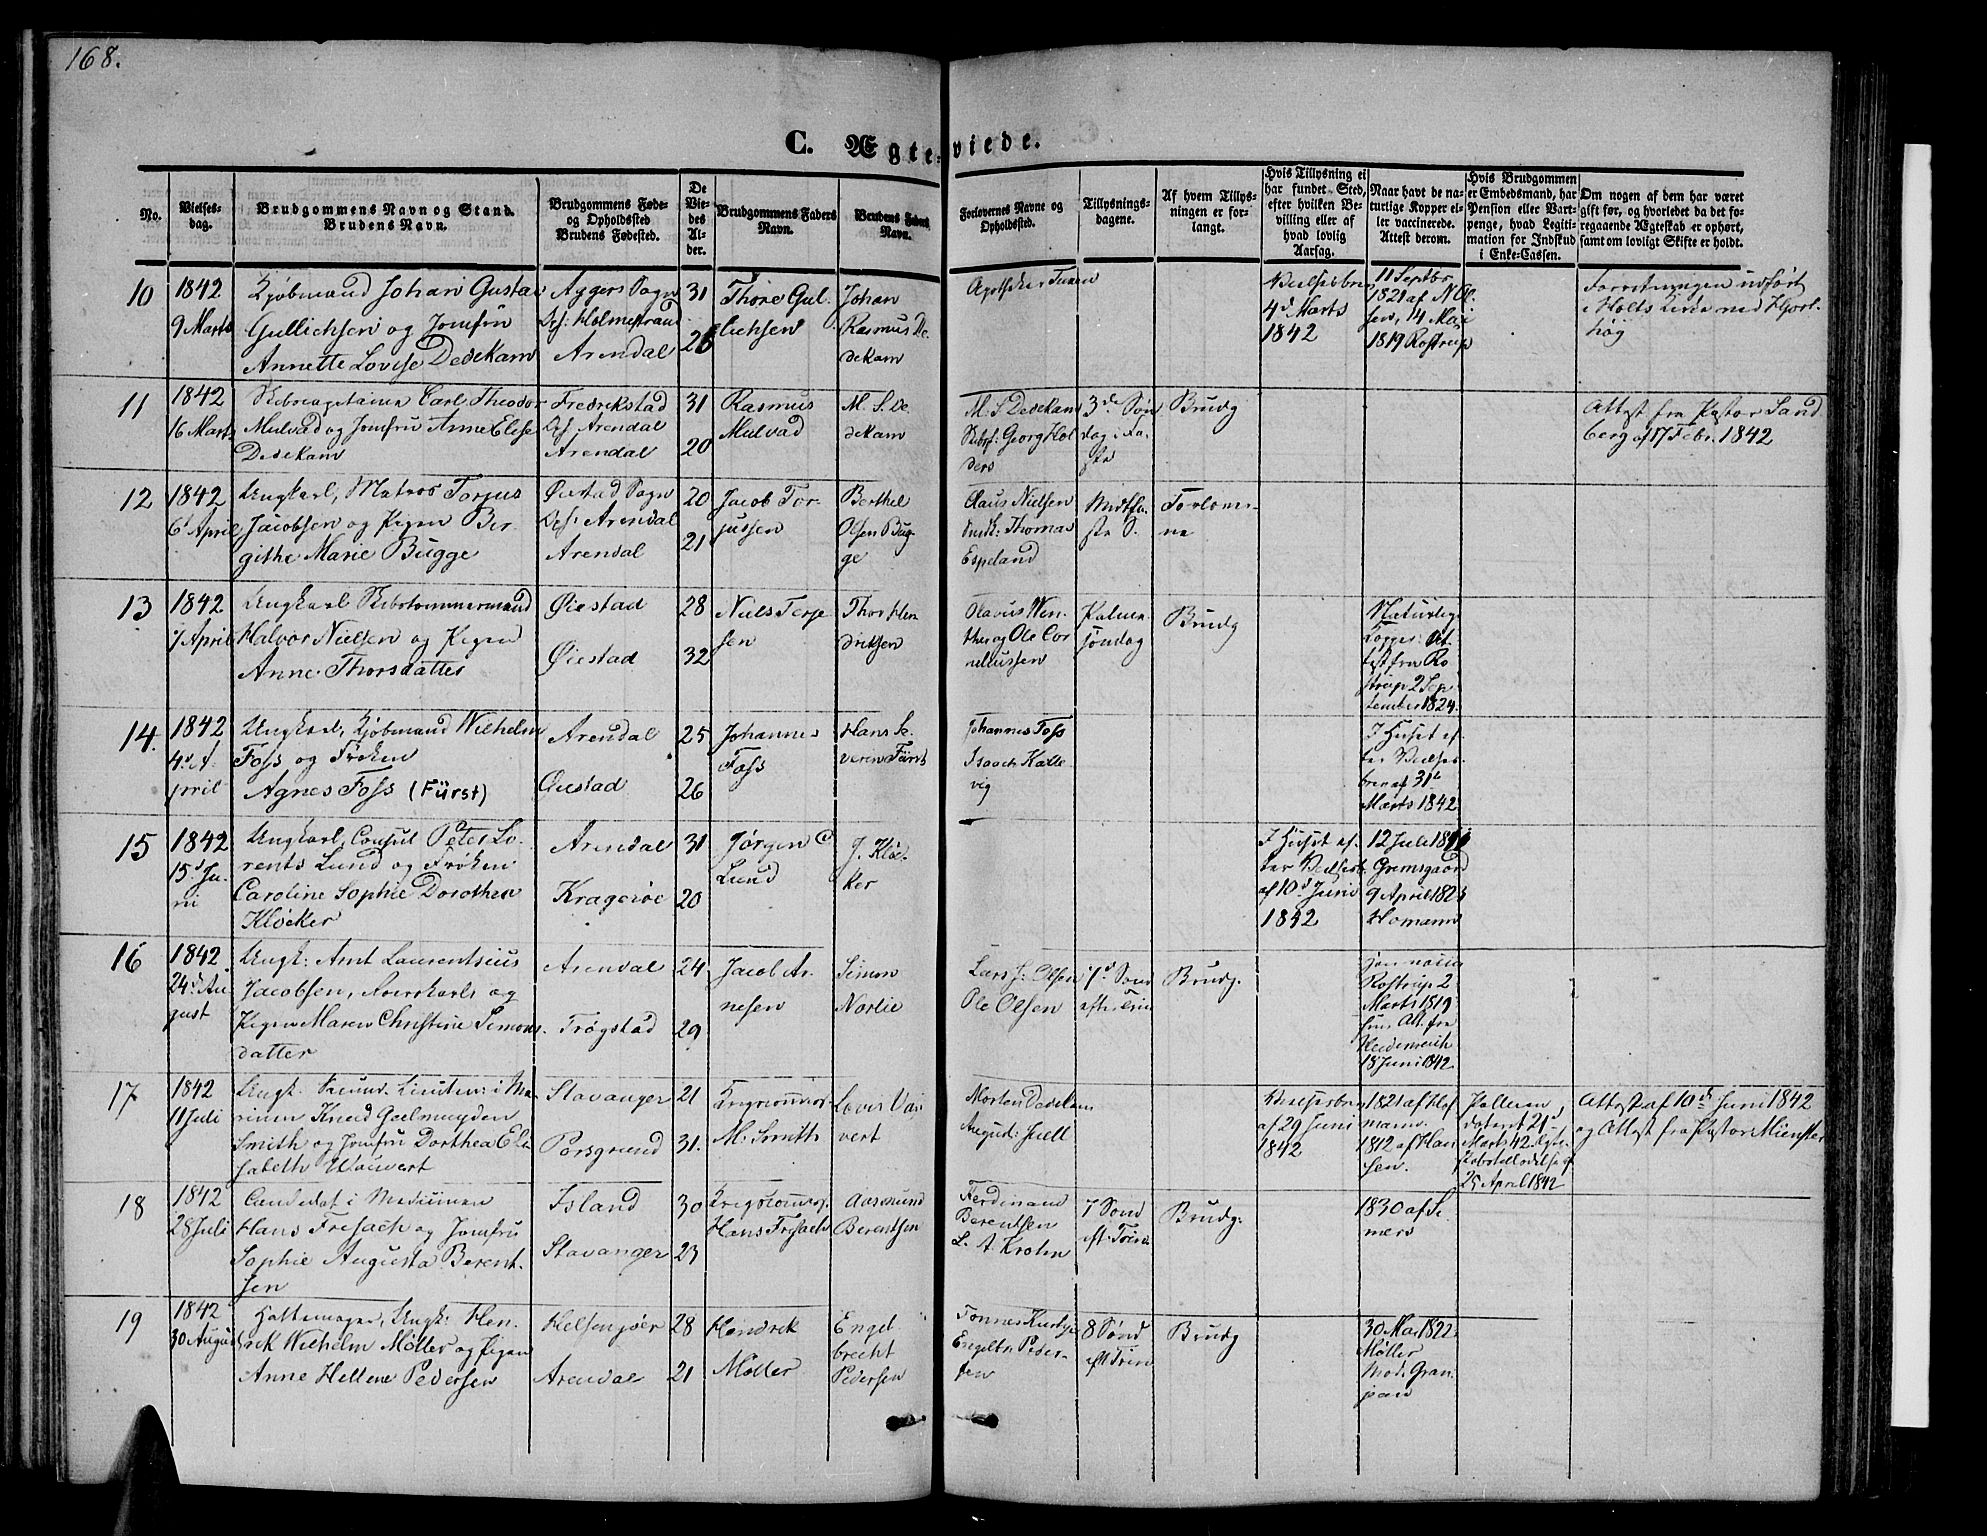 168.
C. Ægteviede.
No.
Vielses-
dag.
Brudgommens Navn og Stand.
Brudens Navn.
Brudgommens Føde-
og Opholdssted
Brudens Fødested.
De
Vie-
des
Al-
der.
Brudgommens Faders
Navn.
Brudens Faders
Navn.
Forlovernes Navne og
Opholdssted.
Tillysnings-
dagene.
Af hvem Tillys-
ningen er for-
langt.
Hvis Tillysning ei
har fundet Sted,
efter hvilken Be-
villing eller af
hvad lovlig
Aarsag.
Naar havt de na-
turlige Kopper el-
ler vaccinerede.
Attest derom.
Hvis Brudgommen
er Embedsmand, har
Pension eller Vart-
penge, hvad Legiti-
mation for Indskud
i Enke-Cassen.
Om nogen af dem har været
gift før, og hvorledet da det fo-
regaaende Ægteskab er ophørt,
samt om lovligt Skifte er holdt.
10
1842
9 Marts
Kjøbmand Johan Gustav
Gullichsen og Jomfru
Annette Lovise Dedekam
Aggers Sogn
Holmestrand
Arendal
31
26
Thore Gul-
lichsen
Johan
Rasmus De-
dekam
Apotheker Tuxen
4d Marts
1842
11 Septbr
1821 af N Ol-
sen, 14 Mai
1819 Rostrup
Forretningen udført
i Holts Kirke ved Hjort-
høg
11
1842
16 Marts
Skibscapitaine Carl Theodor
Mulvad og Jomfru Anne Elise
Dedekam
Fredrikstad
Arendal
Arendal
31
20
Rasmus
Mulvad
M. S. De-
dekam
M. S Dedekam
Georg Hol-
ders
3de Søn-
dag i Fa-
ste
Brudg
Attest fra Pastor Sand-
berg af 17 Febr. 1842
12
1842
6d April
Ungkarl, Matros Torjus
Jacobsen og Pigen Ber-
githe Marie Bugge
Øiestad Sogn
Arendal
Arendal
20
21
Jacob Tor-
jussen
Berthel
Olsen Bug-
ge
Claus Nielsen
Thomas
Espeland
Midtfa-
ste S.
Forlover-
ne
13
1842
7 April
Ungkarl Skibstommermand
Halvor Nielsen og Pigen
Anne Thorsdatter
Øiestad
Øiestad
28
32
Niels Terje-
sen
Thor Hen-
driksen
Olavus Wen-
og Ole Cor-
neliussen
Palme-
søndag
Brudg
Naturlige
Kopper At-
test fra Ro-
strup 2 Sep-
tember 1824.
14.
1842
4d A-
pril
Ungkarl, Kjøbmand Wilhelm
Foss og Frøken
Agnes Foss (Fürst)
Arendal
Øiestad
25
26
Johannes
Foss
Hans Se-
veren Fürst
Johannes Foss
Isaach Kalle-
vig
I Huset ef-
ter Vielses-
brev af 31te
Marts 1842
15
1842
15d Ju-
ni
Ungkarl, Consul Peter Lo-
rents Lund og Frøken
Caroline Sophie Dorothea
Kløcker
Arendal
Kragerøe
31
20
Jørgen C
Lund
J. Kløc-
ker
I Huset ef-
ter Vielsesb.
af 10d Juni
1842
12 Juli
Gremsgaard
9 April
Homann
16
1842
24d Au-
gust
Ungk: Amt Laurentsius
Jacobsen, og
Pigen Maren Christine Simons-
datter
Arendal
Trøgstad
24
29
Jacob Ar-
nesen
Simen
Norlie
Lars J: Olsen
Ole Olsen
7d Sønd
efter
Brudg.
Rostrup 2
Marts 1819
hun Att. fra
18 Juni 1842.
17
1842
11 Juli
Ungk. Secund. Lieuten: i Ma-
rinen Knud Geelmuyden
Smith og Jomfru Dorthea Eli-
sabeth Wauvert
Stavanger
Porsgrund
21
31.
M. Smith
Lovis Vau-
vert
Morten Dedekam
August: Juell
Vielsesbrev
af 29 Juni
1842
1821 af Hof-
mann.
1812 af Han-
sen.
datert 21d
Marts 42.
25 April 1842
Attest af 10de Juni 1842
og Attest fra Pastor Münster
18
1842
28 Juli
Candidat i Medicinen
Hans Fresach og Jomfru
Sophie Augusta Berent-
sen
Island
Stavanger
30
23
Hans Fresach
Aasmund
Berentsen
Ferdinand
Berentsen
L. A. Krohn
7 Sønd
eft. Trin.
Brudg.
1830 af Si-
mers
19
1842
30 August
Hattemager, Ungk: Hen-
rik Wilhelm Møller og Pigen
Anne Hellene Pedersen
Helsengiøer
Arendal
28
21
Hendrek
Møller
Engel-
brecht
Pedersen
Tønnes
Engelbr. Peder-
sen
8 Sønd
eft Trin
Brudg
30 Mai 1822
Møller